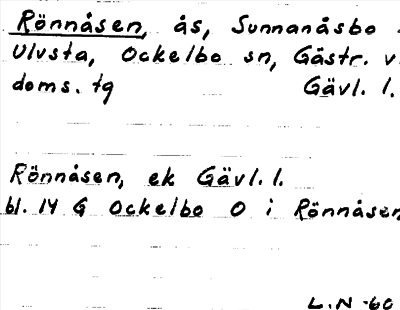 Rönnåsen, ås, Sunnanåsbo
Ulvsta, Ockelbo sn, Gästr. v
doms. tg Gävl. l.
Rönnåsen, ek Gävl. l.
bl. 14 G Ockelbo O i Rönnåsen
L.N -60